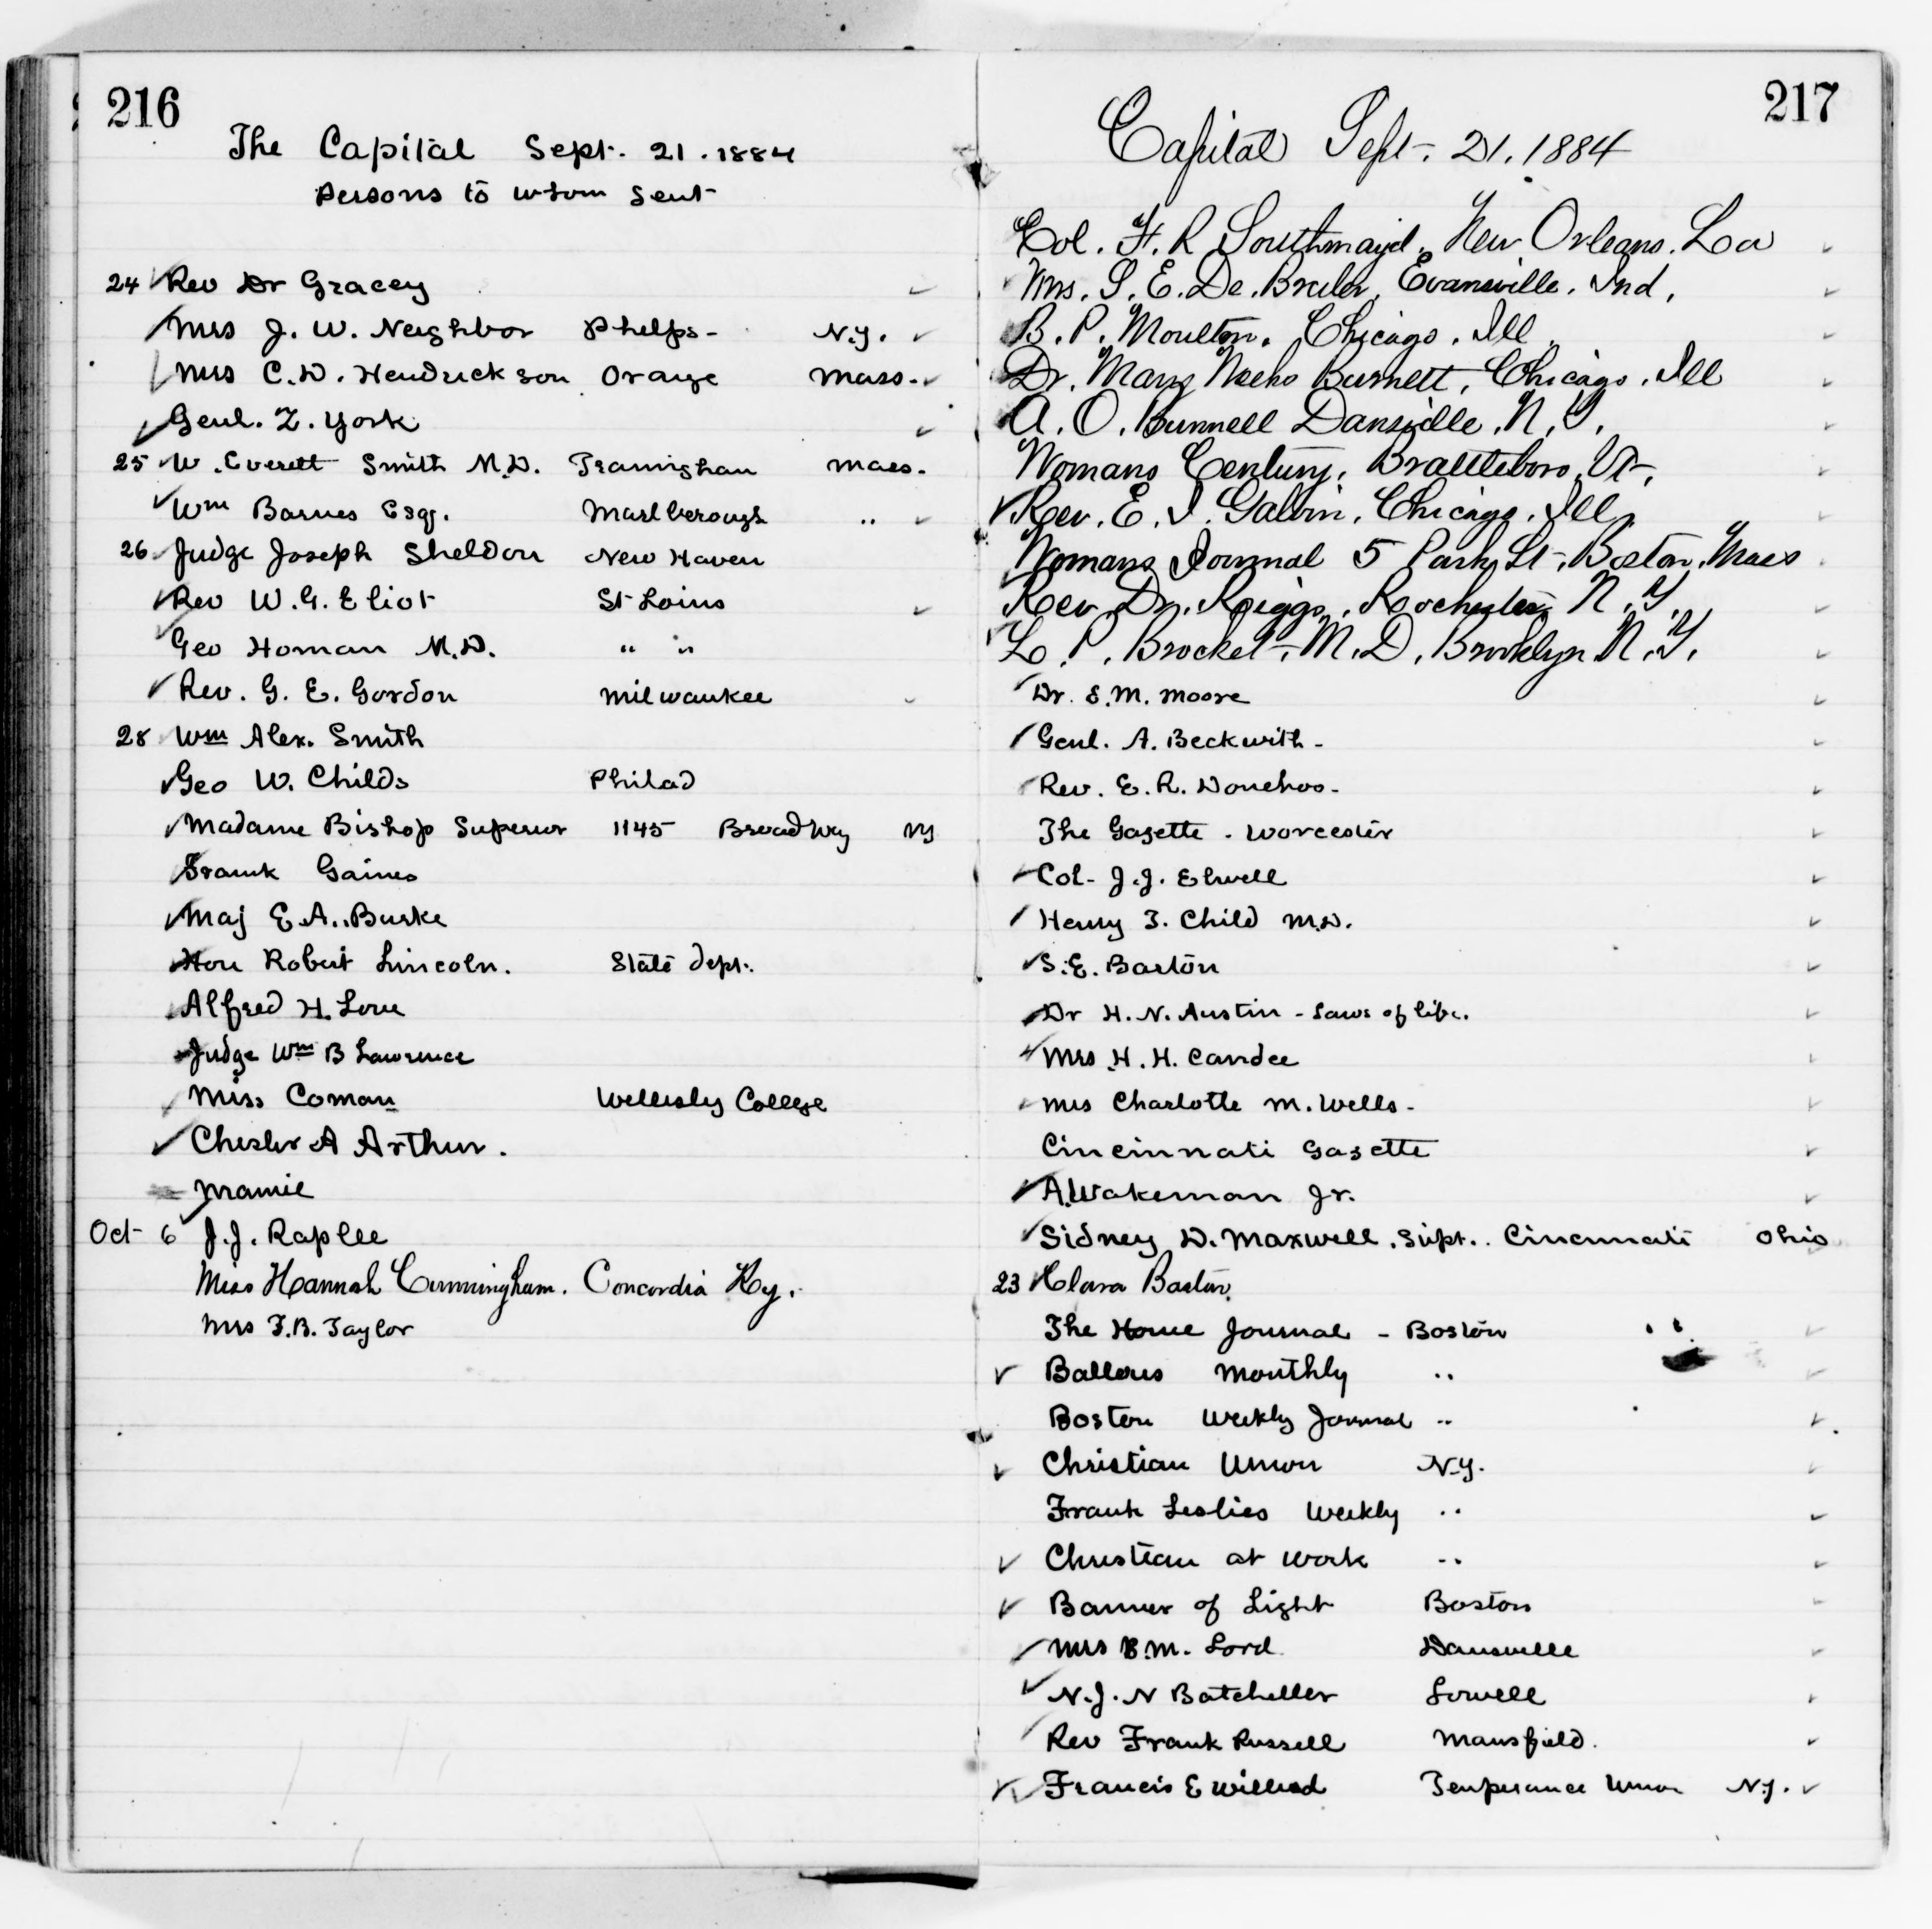 216
The Capital Sept. 21. 1884
Persons to whom sent
24 Rev Dr Gracey
Mrs J. W. Neighbor Phelps - N.Y.
Mrs C. D. Hendrickson Orange Mass.
Genl. Z. York
25 W. Everett Smith M.D. Framingham Mass.
Wm Barnes Esq. Marlborough ..
26 Judge Joseph Sheldon New Haven
Rev W. G. Eliot St Loius
Geo Homan M.D. " "
Rev. G. E. Gordon Milwaukee
28 Wm Alex. Smith
Geo W. Childs Philad
Madame Bishop Superior 1145 Broadway NY
Frank Gaines
Maj E. A. Burke
Hon Robert Lincoln. State Dept.
Alfred H. Love
Judge Wm B Lawrence
Miss Coman Wellesley College
Chester A Arthur.
Mamie
Oct 6 J. J. Raplee
Miss Hannah Cunningham. Concordia Ky.
Mrs F. B. Taylor
217
Capital Sept. 21. 1884
Col. F. R Southmayd. New Orleans. La
Mrs. S. E. De. Bruler, Evansville. Ind.
B. P. Moulton. Chicago. Ill.
Dr. Mary Weeks Burnett, Chicago. Ill
A. O. Bunnell Dansville. N. Y.
Womans Century, Brattleboro, Vt.
Rev. E. I. Galvin, Chicago. Ill.
Womans Journal 5 Park St. Boston. Mass
Rev. Dr. Riggs. Rochester N. Y.
L. P. Brocket. M. D. Brooklyn N. Y.
Dr. E. M. Moore
Genl. A. Beckwith -
Rev. E. R. Donehoo -
The Gazette - Worcester
Col. J. J. Elwell
Henry T. Child M.D.
S. E. Barton
Dr H. N. Austin - Laws of life.
Mrs H. H. Candee
Mrs Charlotte M. Wells -
Cincinnati Gazette
A. Wakeman Jr.
Sidney D. Maxwell. Supt. Cincinnati Ohio
23 Clara Barton
The Home Journal - Boston
Ballous Monthly ..
Boston Weekly Journal ..
Christian Union N.Y.
Frank Leslies Weekly ..
Christian at Work ..
Banner of Light Boston
Mrs E. M. Lord Dansville
N. J. N Batcheller Lowell
Rev Frank Russell Mansfield.
Francis E Willard Temperance Union N.Y.